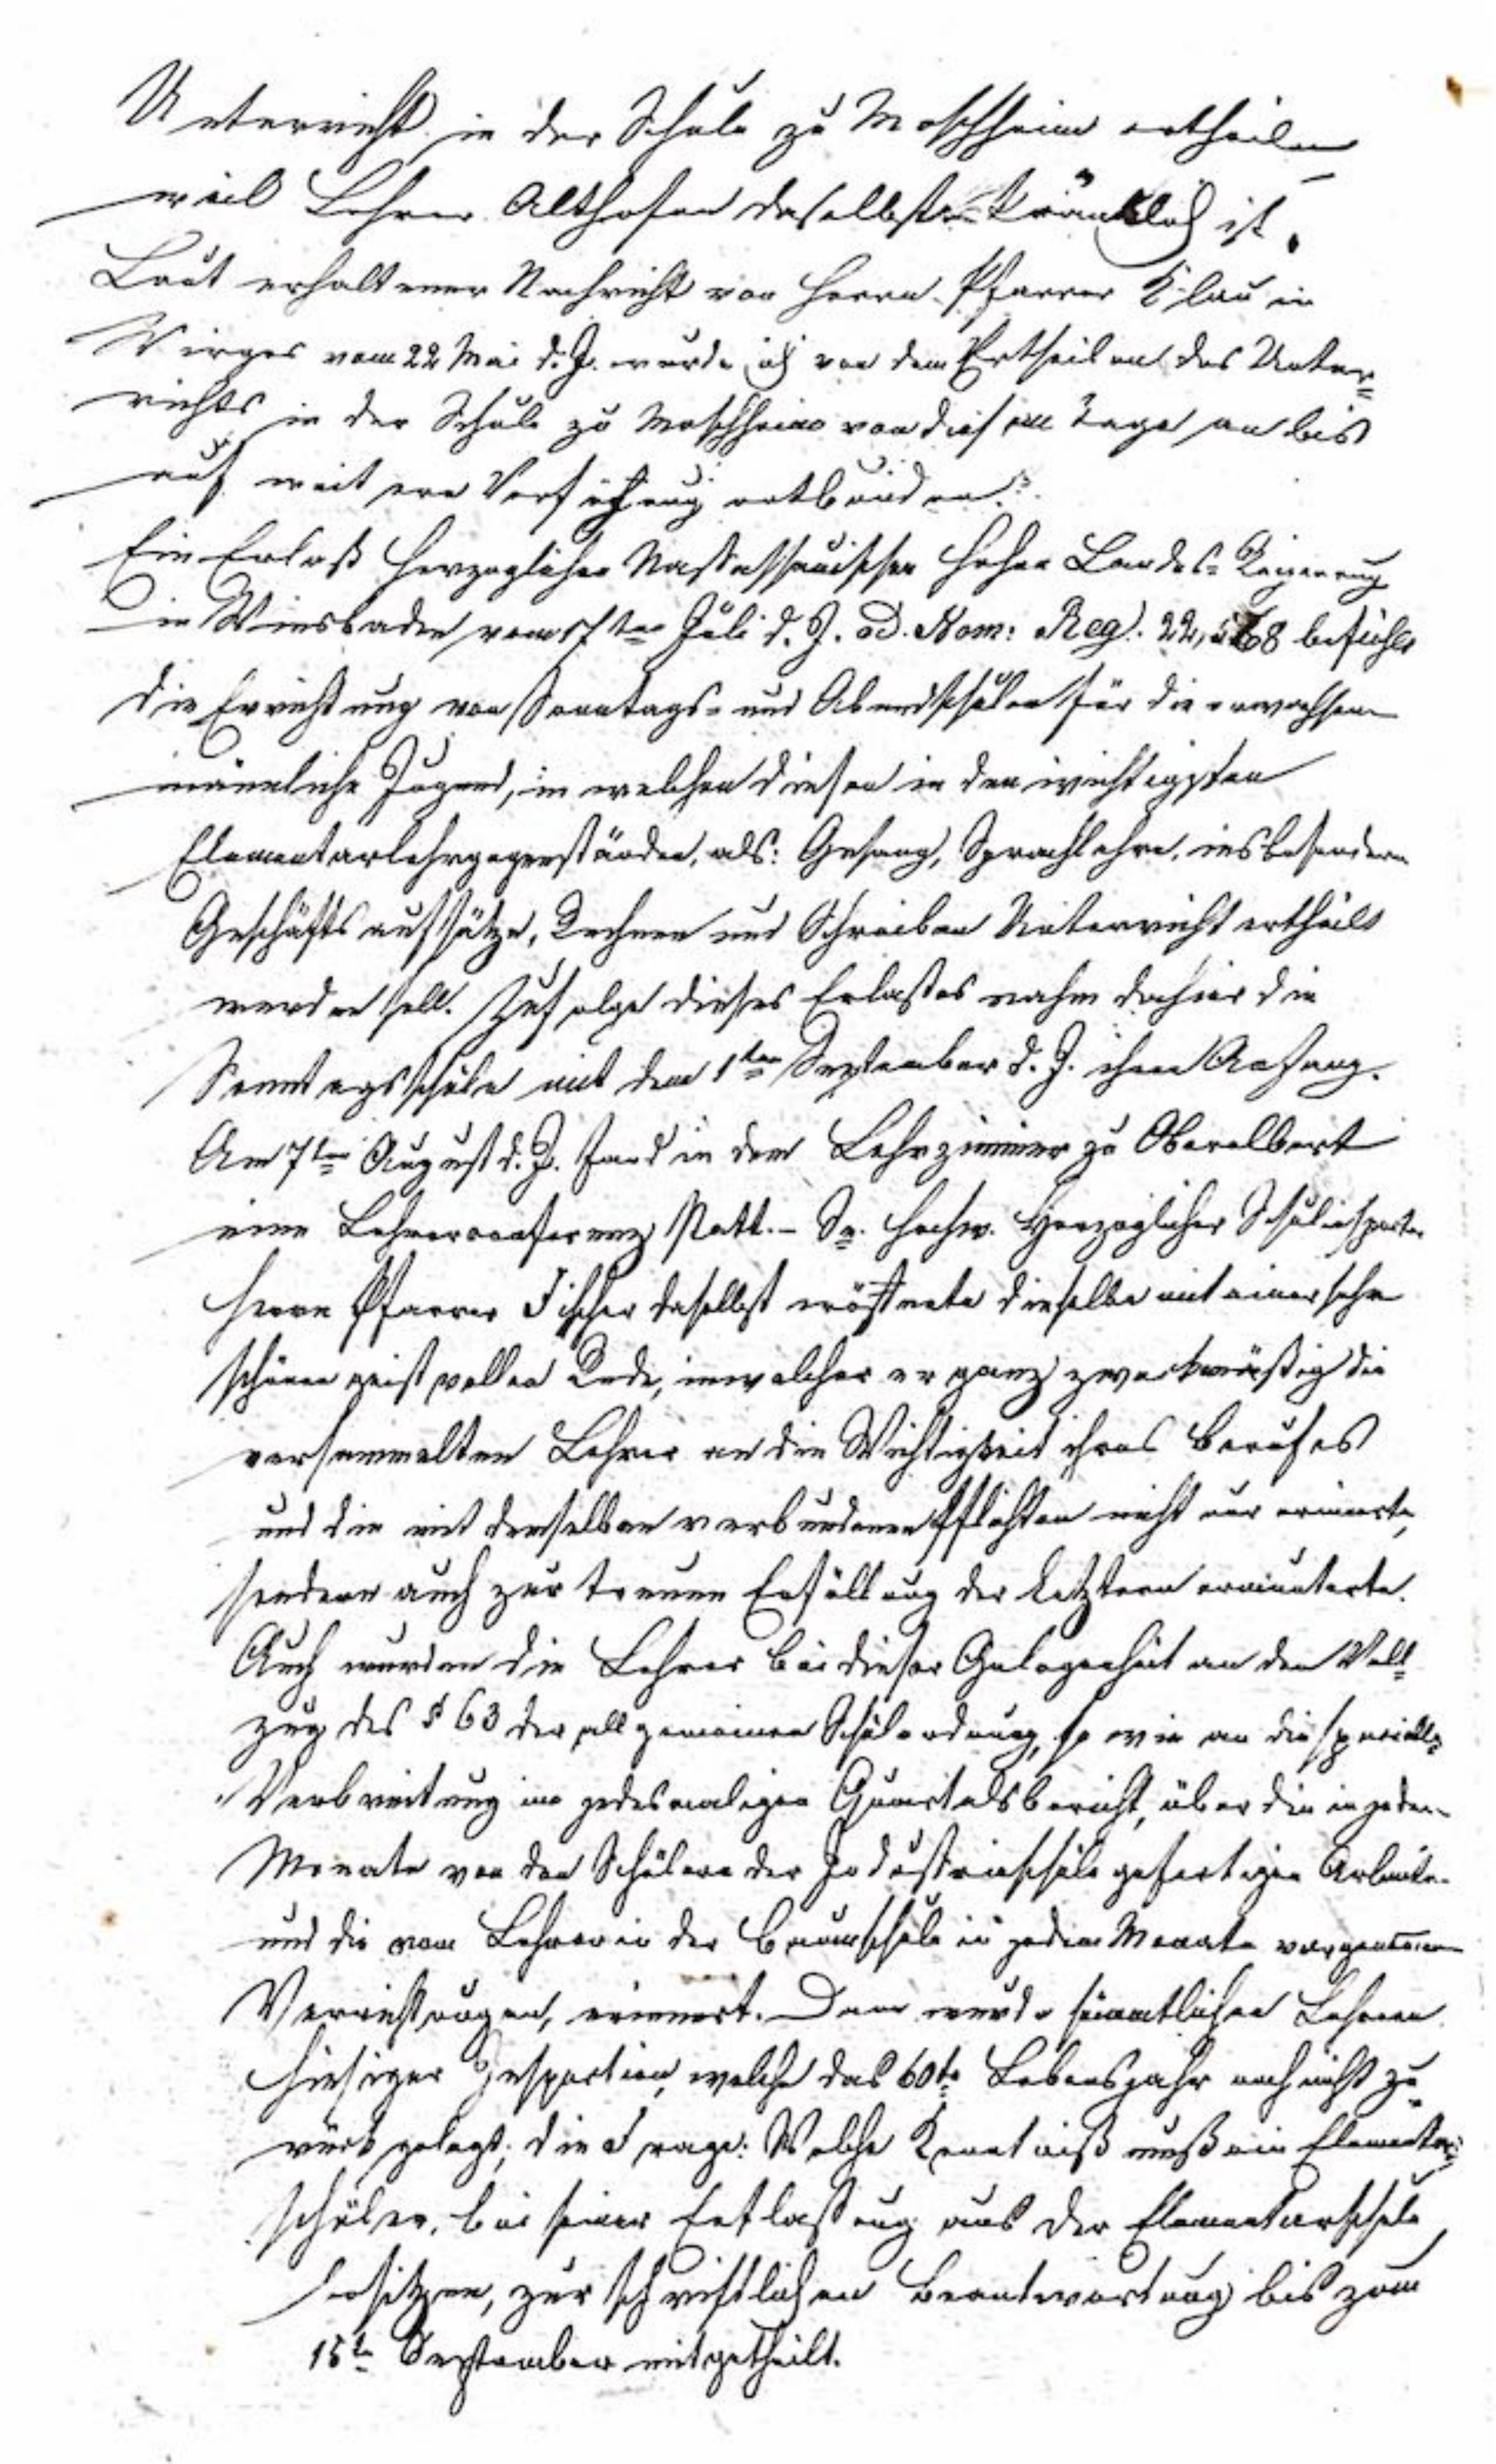 Unterricht in der Schule zu Moschheim ertheilen
weil Lehrer Althofen daselbst kränklich ist.
Laut erhaltener Nachricht von Herrn Pfarrer Klau in
Wirges vom 22 Mai d. J. wurde ich von dem Ertheilen des Unter=
richts in der Schule zu Moschheim von diesem Tage an bis
auf weitere Verfügung entbunden.
Ein Erlaß Herzoglicher Nassauischer hoher Landes=Regierung
in Wiesbaden vom ten Juli d. J. ad. Num: Reg. befiehlt
die Errichtung von Sonntags= und Abendschulen für die erwachsene
männliche Jugend, in welchen dieser in den wichtigsten
Elementarlehrgegenständen, als: Gesang, Sprachlehre, insbesondere
Geschäftsaufsätze, Rechnen und Schreiben Unterricht ertheilt
werden soll. Zufolge dieses Erlaßes nahm dahier die
Sonntagsschule mit dem 1ten September d. J. ihren Anfang.
Am 7ten August d. J. fand in dem Lehrzimmer zu Oberelbert
eine Lehrerconferenz statt. – Se. Hochw. Herzoglicher Schulinspector
Herr Pfarrer Fischer daselbst eröffnete dieselbe mit einer sehr
schönen geistvollen Rede, in welcher er ganz zweckmäßig die
versammelten Lehrer an die Wichtigkeit ihres Berufes
und die mit demselben verbundenen Pflichten nicht nur erinnerte,
sondern auch zur treuen Erfüllung der Letztern ermunterte.
Auch wurden die Lehrer bei dieser Gelegenheit an den Voll=
zug des § 63 der allgemeinen Schulordnung, so wie an die specielle
Verbreitung im jedesmaligen Quartalsbericht, über die in jedem
Monate von den Schülern der Industrieschule gefertigten Arbeiten
und die vom Lehrer in der Baumschule in jedem Monate vorgenommenen
Verrichtungen, erinnert. Dann wurde sämmtlichen Lehrern
hiesiger Inspection, welche das 60te Lebensjahr noch nicht zu=
rück gelegt, die Frage: Welche Kenntniß muß ein Elementar=
schüler, bei seiner Entlassung aus der Elementarschule
besitzen, zur schriftlichen Beantwortung bis zum
15ten September mitgetheilt.